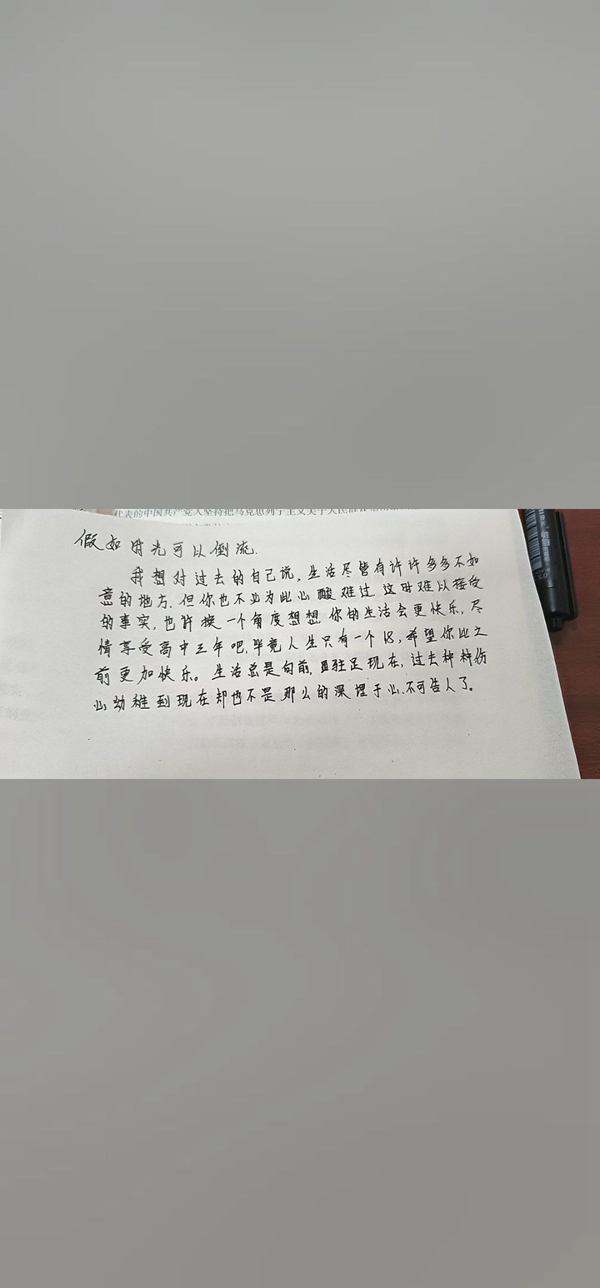 代表的中国共产党人坚持把马克思列宁主义关于人民
假如时光可以倒流.
我想对过去的自己说,生活尽管有许许多多不如
意的地方.但你也不必为此心酸难过.这时难以接受
的事实,也许换一个角度想想.你的生活会更快乐.尽
情享受高中三年吧.毕竟人生只有一个18,希望你比之
前更加快乐。生活总是向前.且驻足现在,过去种种伤
心幼稚到现在却也不是那么的深埋于心.不可告人了。